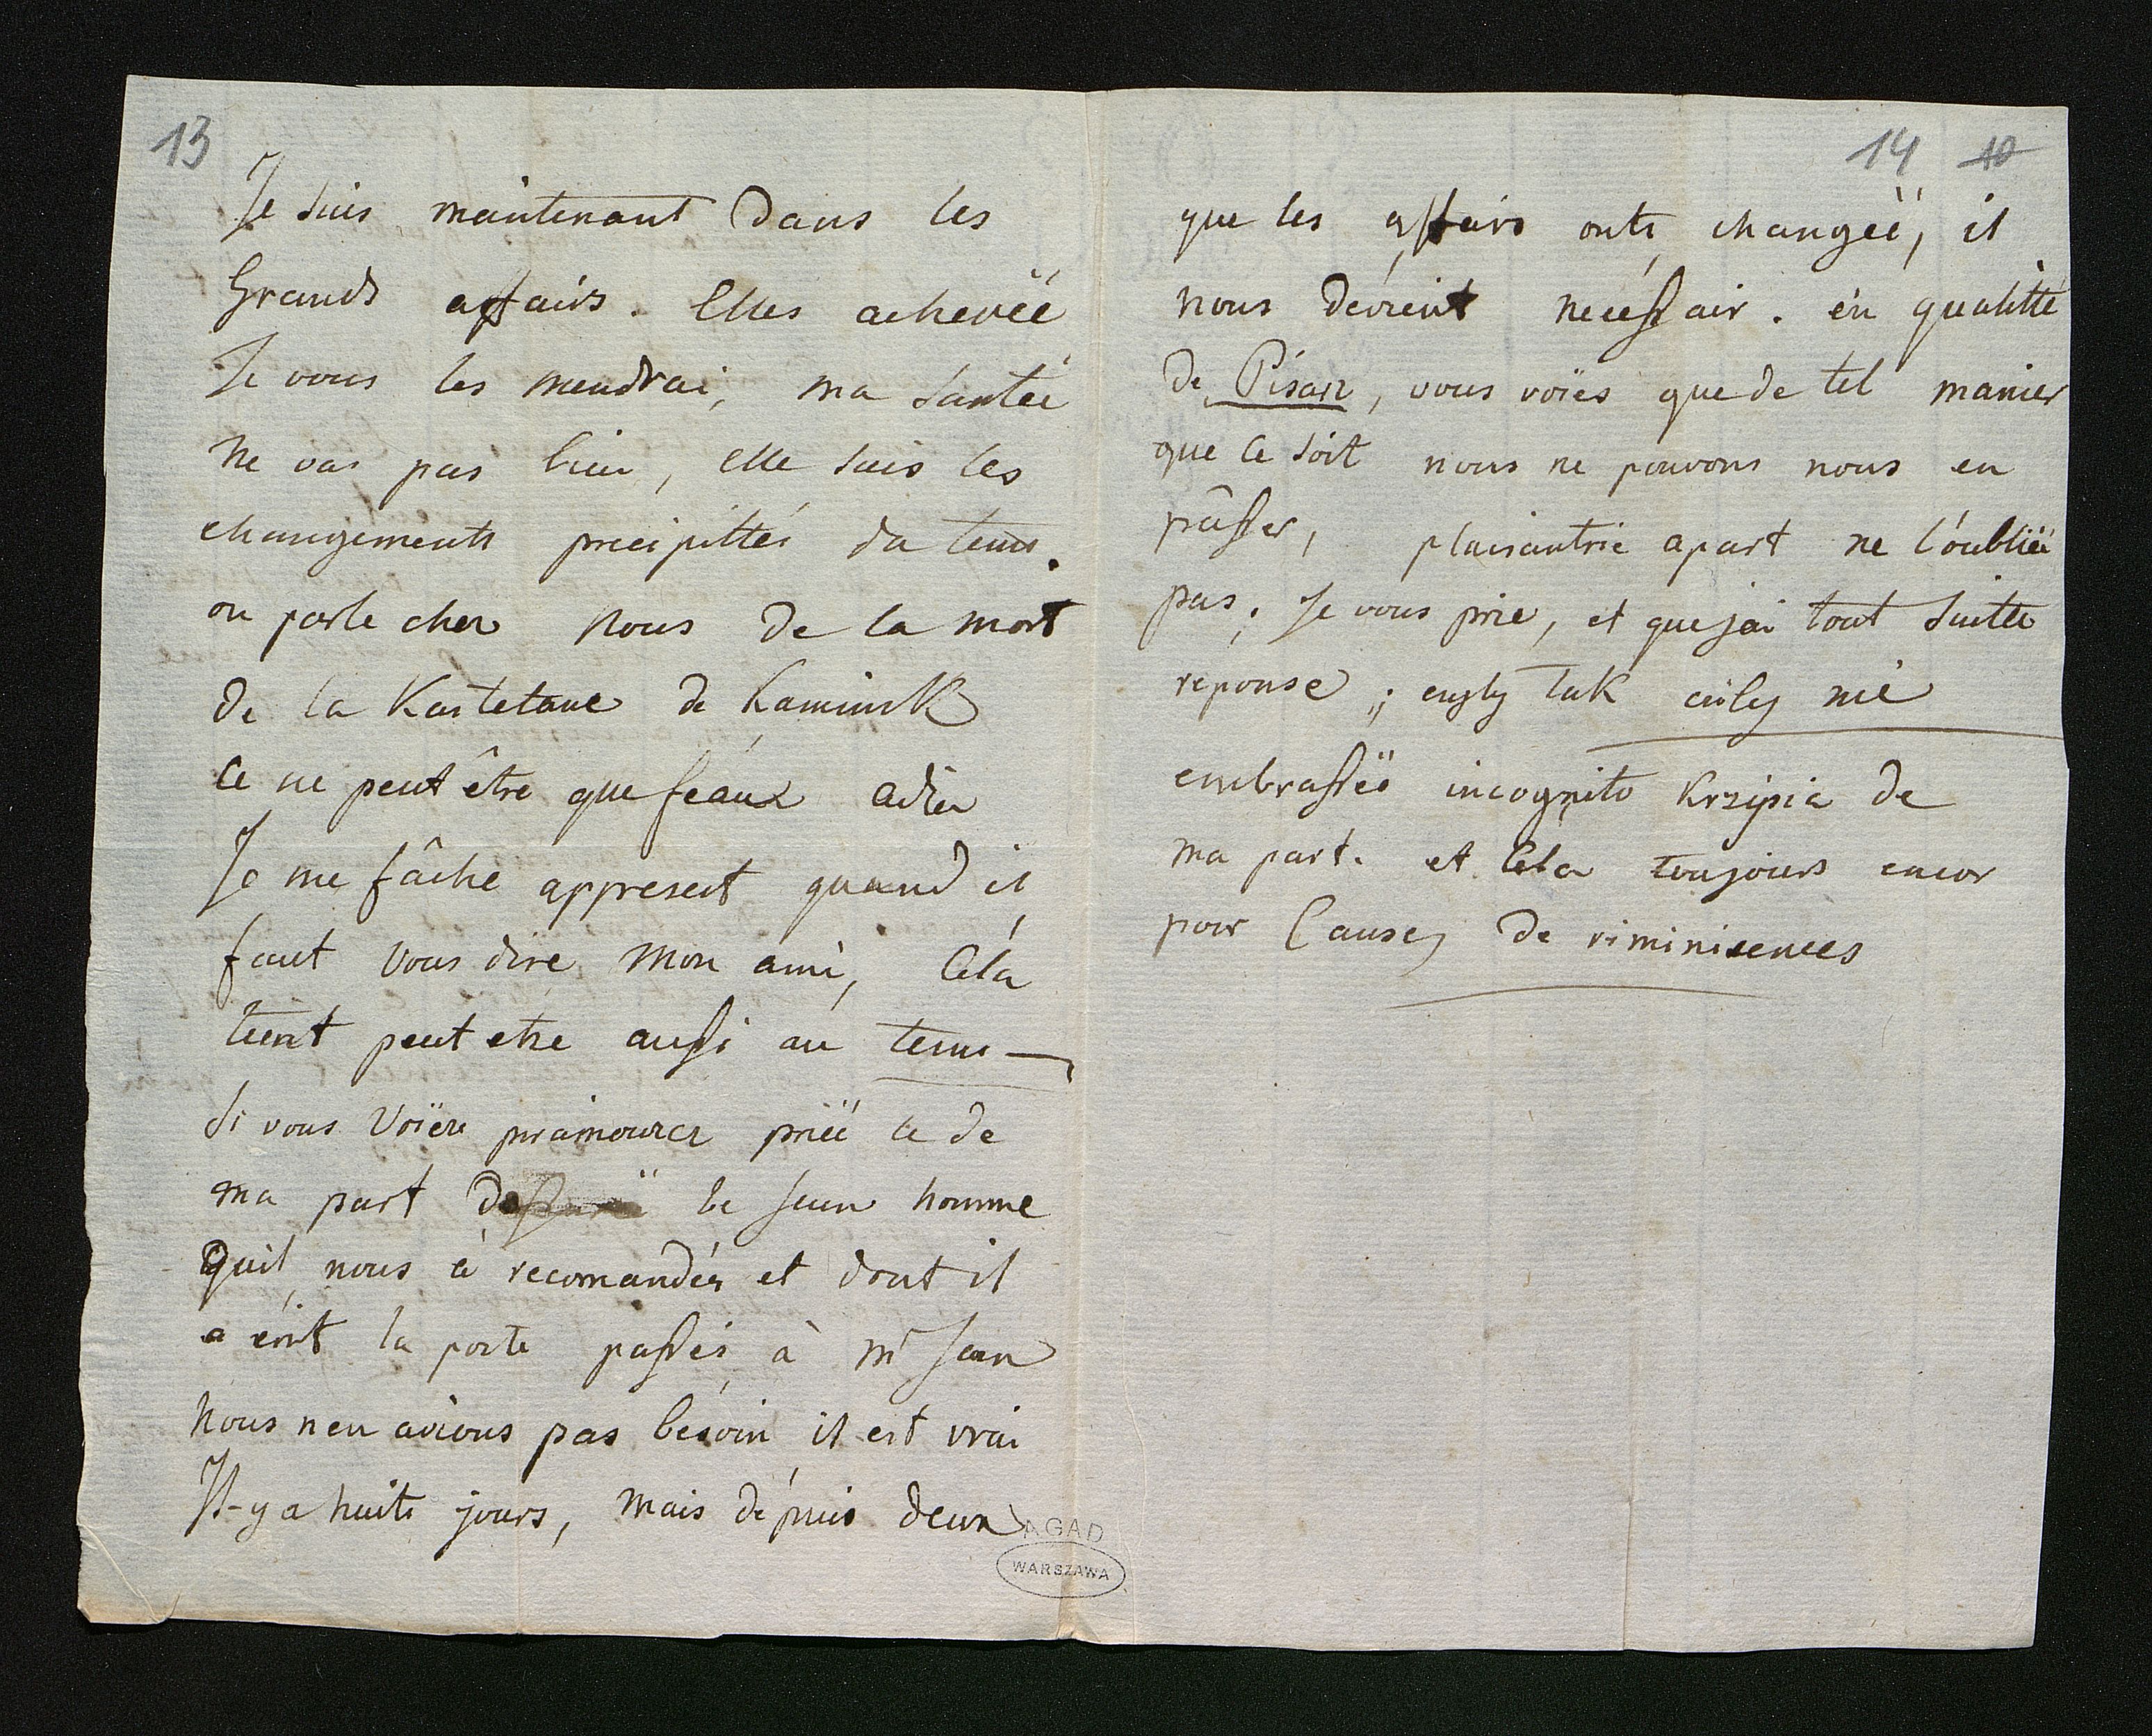 13
Je suis maintenant dans les
Grands affairs. Elles achevéé
Je vous les mendrai, ma santéé
ne vas pas bien, elle suis les
changements precipittés du tems.
on parle chez nous de la mort
de la Kastelane de Kaminsk
Ce ne peut être que feaux adieu
Je me fâche appresent quand il
faut vous dire mon ami, Cela
tient peut etre aussi au tems —
Si vous voïéz priéé le de
ma part le jeun homme
Quil nous à recomandés et dont il
a écrit la poste passés à Mr Jean
nous n'en avions pas besoin il est vrai
Il-y a huits jours, mais dépuis deux
AGAD
WARSZAWA
14 10
que les affairs onts changéé, il
nous dévient necessair. en qualitté
de Pisarz, vous voïés que de tel manier
que ce soit nous ne pouvons nous en
pâsser, plaisantrie apart ne l'oubliéé
pas, Je vous prie, et que jai tout suitte
reponse ; czyly tak czily nié
embrasséé incognito Krzipia de
ma part. et Cela toujours encor
pour Causes de riminisences